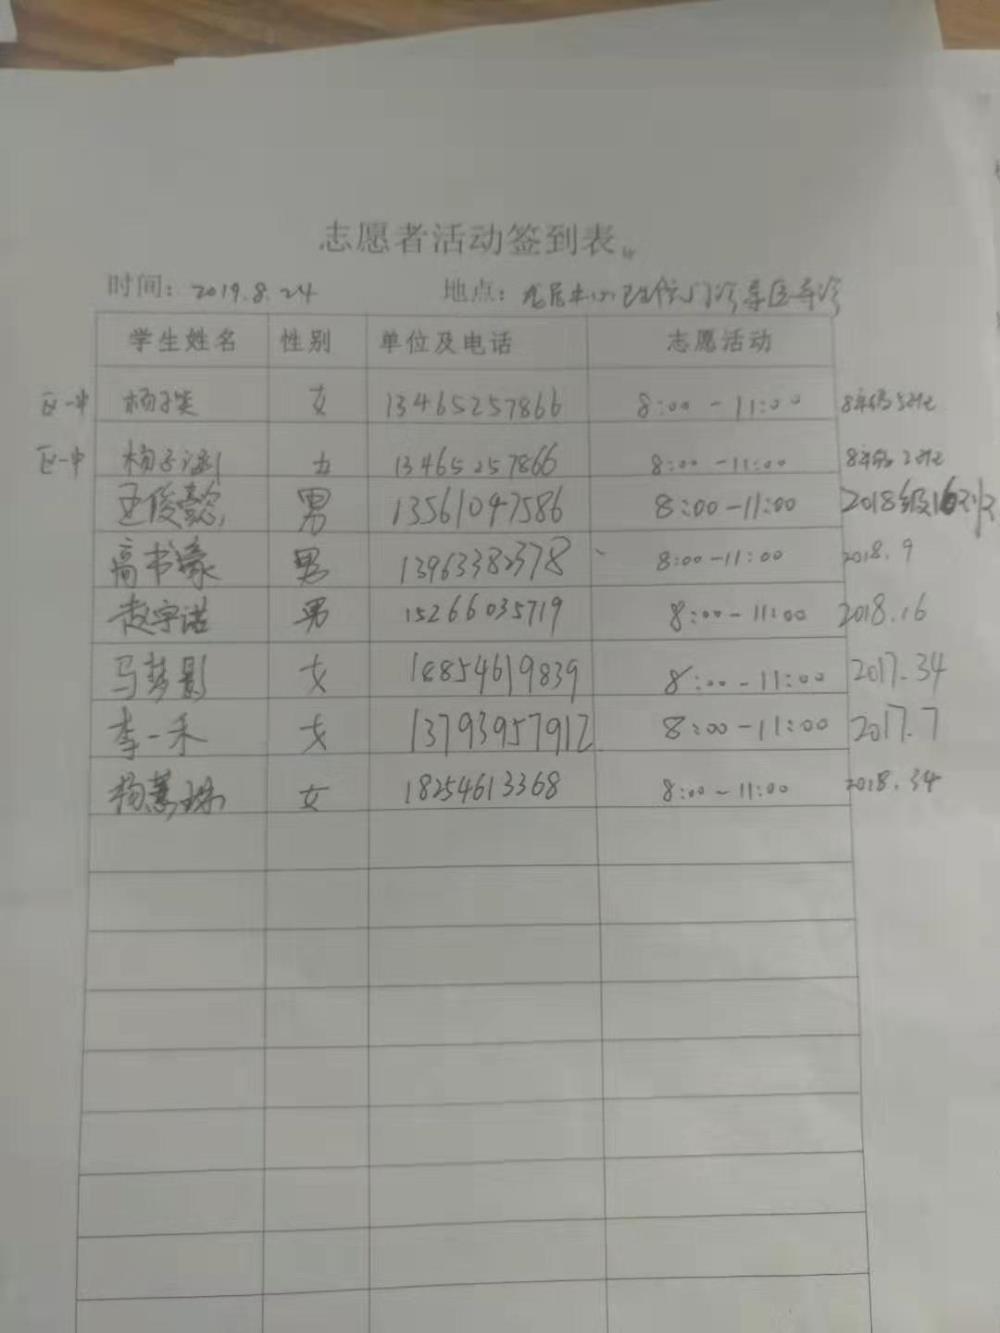 志愿者活动签到表
时间：2019.8.24 地点：中心 门诊导医导诊
学生姓名 性别 单位及电话 志愿活动
区一中 杨子奕 女 13465257866 8:00-11:00 8年级5班
区一中 杨子 女 13465257866 8:00-11:00 8年级2班
王俊懿 男 13561047586 8:00-11:00 2018级16班
高书豪 男 13963382378 8:00-11:00 2018.9
赵宇诺 男 15266035719 8:00-11:00 2018.16
马梦影 女 18854619839 8:00-11:00 2017.34
李一禾 女 13793957912 8:00-11:00 2017.7
杨慧珠 女 18254613368 8:00-11:00 2018.34